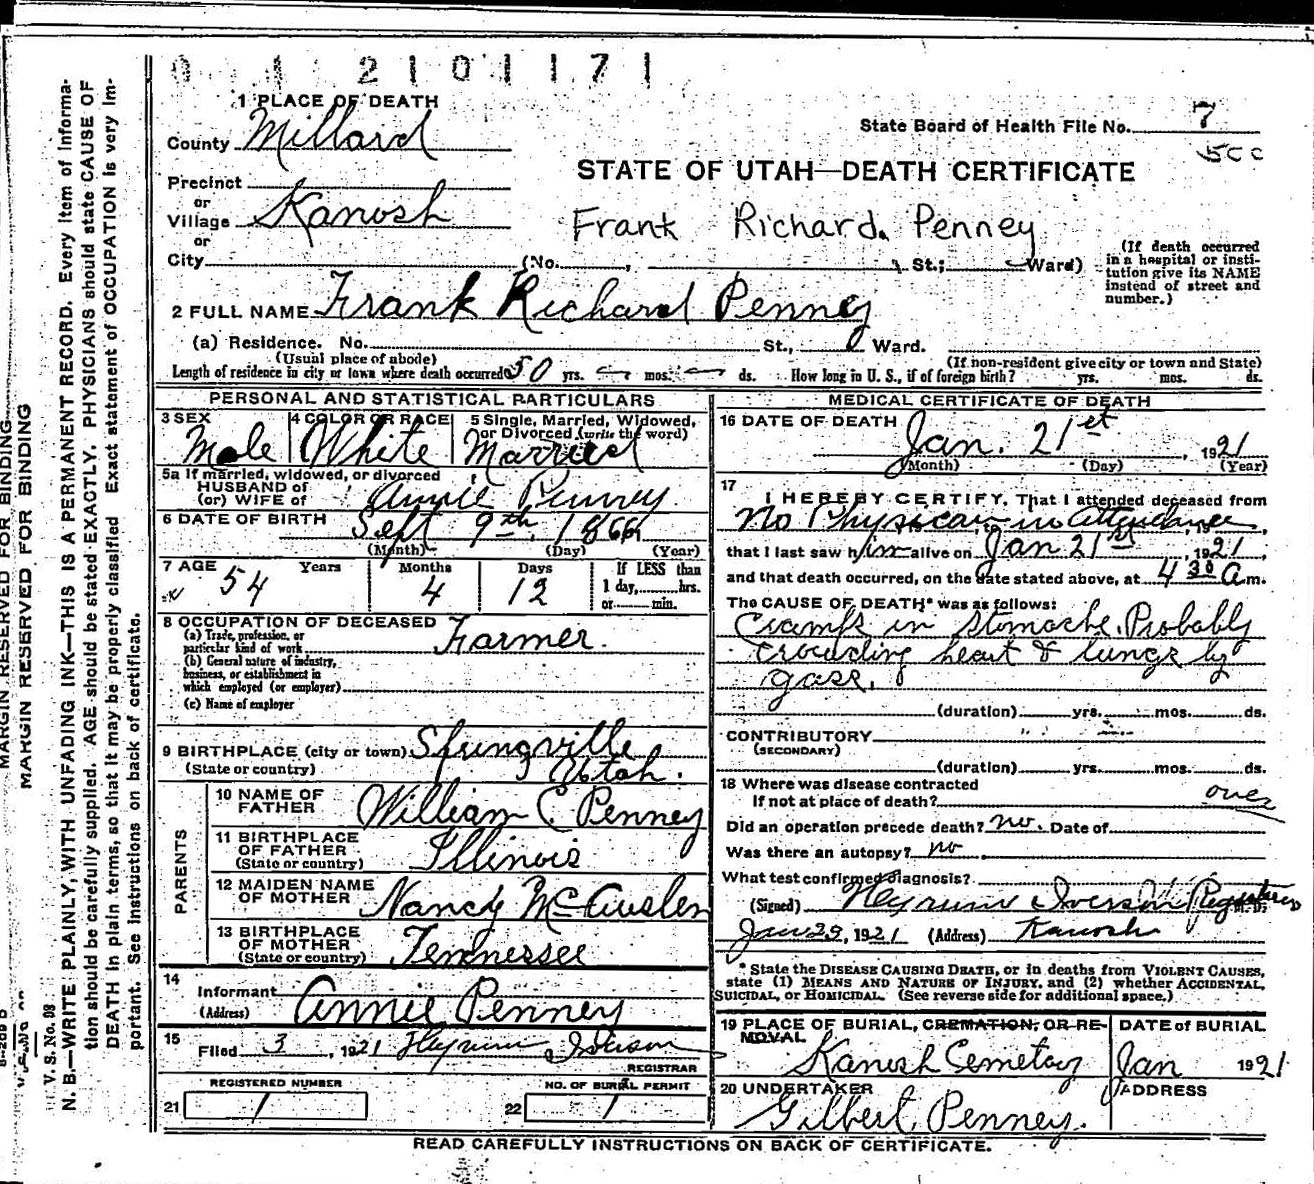 0 1 2 1 0 1 1 7 1
1 PLACE OF DEATH
County Millard
State Board of Health File No. 7
5cc
STATE OF UTAH—DEATH CERTIFICATE
Precinct
or
Village Kanosh
or
City
Frank Richard Penney
(No. , St.; Ward)
(If death occurred
in a hospital or insti-
tution give its NAME
instead of street and
number.)
2 FULL NAME Frank Richard Penney
(a) Residence. No. St., Ward.
(Usual place of abode)
(If non-resident give city or town and State)
Length of residence in city or town where death occurred 50 yrs. — mos. — ds. How long in U. S., if of foreign birth? yrs. mos. ds.
PERSONAL AND STATISTICAL PARTICULARS
3 SEX
Male
4 COLOR OR RACE
White
5 Single, Married, Widowed,
or Divorced (write the word)
Married
5a If married, widowed, or divorced
HUSBAND of
(or) WIFE of
Annie Penney
6 DATE OF BIRTH
Sept 9th, 1866
(Month) (Day) (Year)
7 AGE Years Months Days
54 4 12
If LESS than
1 day, hrs.
or min.
8 OCCUPATION OF DECEASED
(a) Trade, profession, or
particular kind of work Farmer.
(b) General nature of industry,
business, or establishment in
which employed (or employer)
(c) Name of employer
9 BIRTHPLACE (city or town) Springville
(State or country) Utah.
PARENTS
10 NAME OF
FATHER William C Penney
11 BIRTHPLACE
OF FATHER
(State or country) Illinois
12 MAIDEN NAME
OF MOTHER Nancy
13 BIRTHPLACE
OF MOTHER
(State or country) Tennessee
14
Informant Annie Penney
(Address)
15
Filed 3, 1921 Heyrum Iverson
REGISTRAR
REGISTERED NUMBER
21 1
NO. OF BURIAL PERMIT
22 1
MEDICAL CERTIFICATE OF DEATH
16 DATE OF DEATH
Jan. 21st, 1921
(Month) (Day) (Year)
17
I HEREBY CERTIFY, That I attended deceased from
No Physician in attendance
that I last saw him alive on Jan 21st, 1921,
and that death occurred, on the date stated above, at 4 30 a m.
The CAUSE OF DEATH* was as follows:
Cramps in stomache. Probably
crowding heart & lungs by
gass.
(duration) yrs. mos. ds.
CONTRIBUTORY
(SECONDARY)
(duration) yrs. mos. ds.
18 Where was disease contracted
If not at place of death?
over
Did an operation precede death? no. Date of
Was there an autopsy? no
What test confirmed diagnosis?
(Signed) Heyrum Iverson Registrar M. D.
Jan 23, 1921 (Address) Kanosh
* State the DISEASE CAUSING DEATH, or in deaths from VIOLENT CAUSES,
state (1) MEANS AND NATURE OF INJURY, and (2) whether ACCIDENTAL,
SUICIDAL, or HOMICIDAL. (See reverse side for additional space.)
19 PLACE OF BURIAL, CREMATION, OR RE-
MOVAL
Kanosh Semetary
DATE of BURIAL
Jan 1921
20 UNDERTAKER
Gilbert Penney.
ADDRESS
READ CAREFULLY INSTRUCTIONS ON BACK OF CERTIFICATE.
MARGIN RESERVED FOR BINDING
MARGIN RESERVED FOR BINDING
V. S. No. 98
N. B.—WRITE PLAINLY, WITH UNFADING INK—THIS IS A PERMANENT RECORD. Every item of informa-
tion should be carefully supplied. AGE should be stated EXACTLY. PHYSICIANS should state CAUSE OF
DEATH in plain terms, so that it may be properly classified. Exact statement of OCCUPATION is very im-
portant. See instructions on back of certificate.